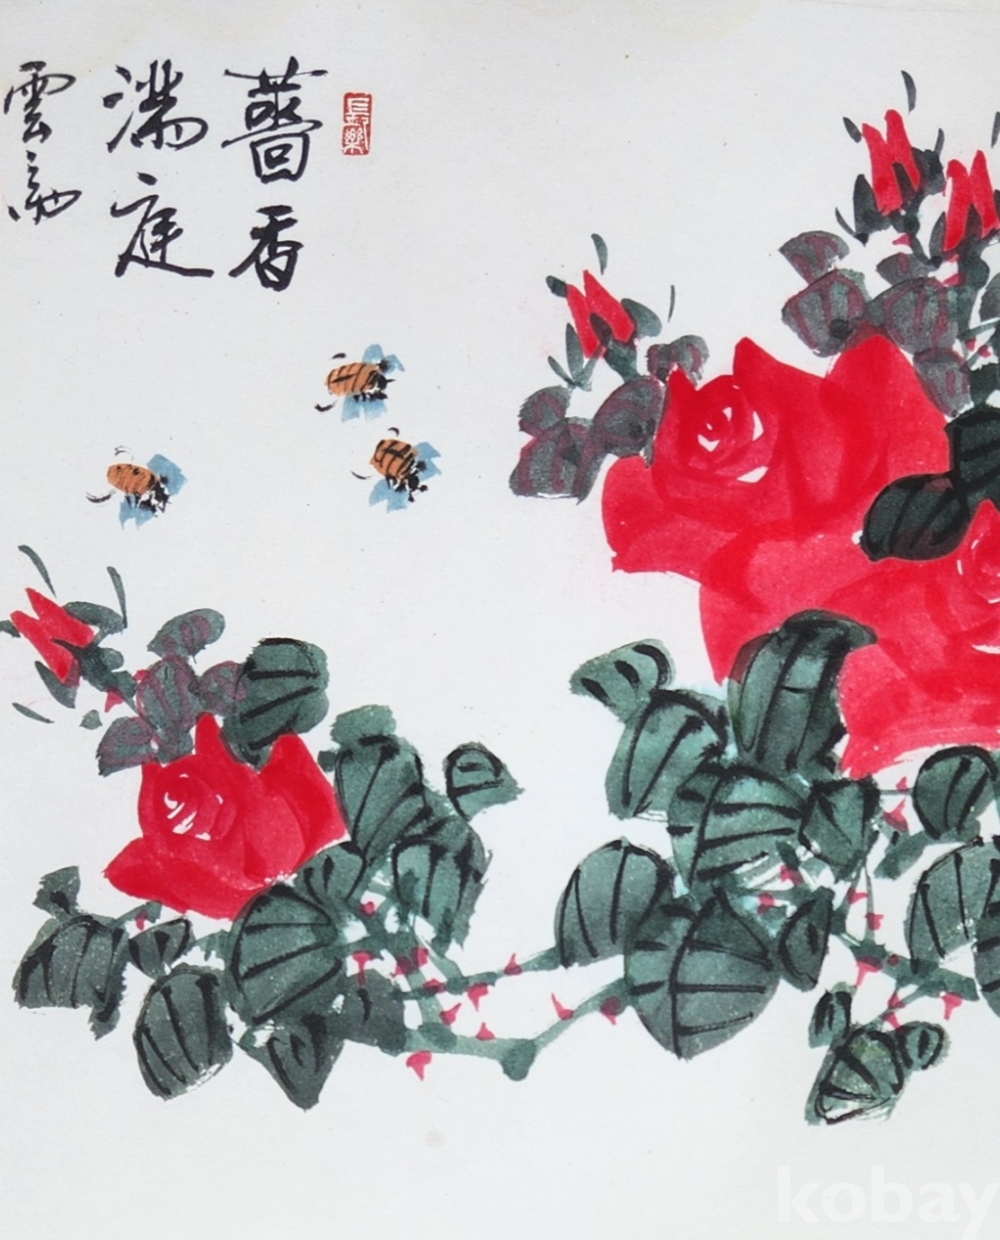 長樂
薔香
滿庭
雲
kobay